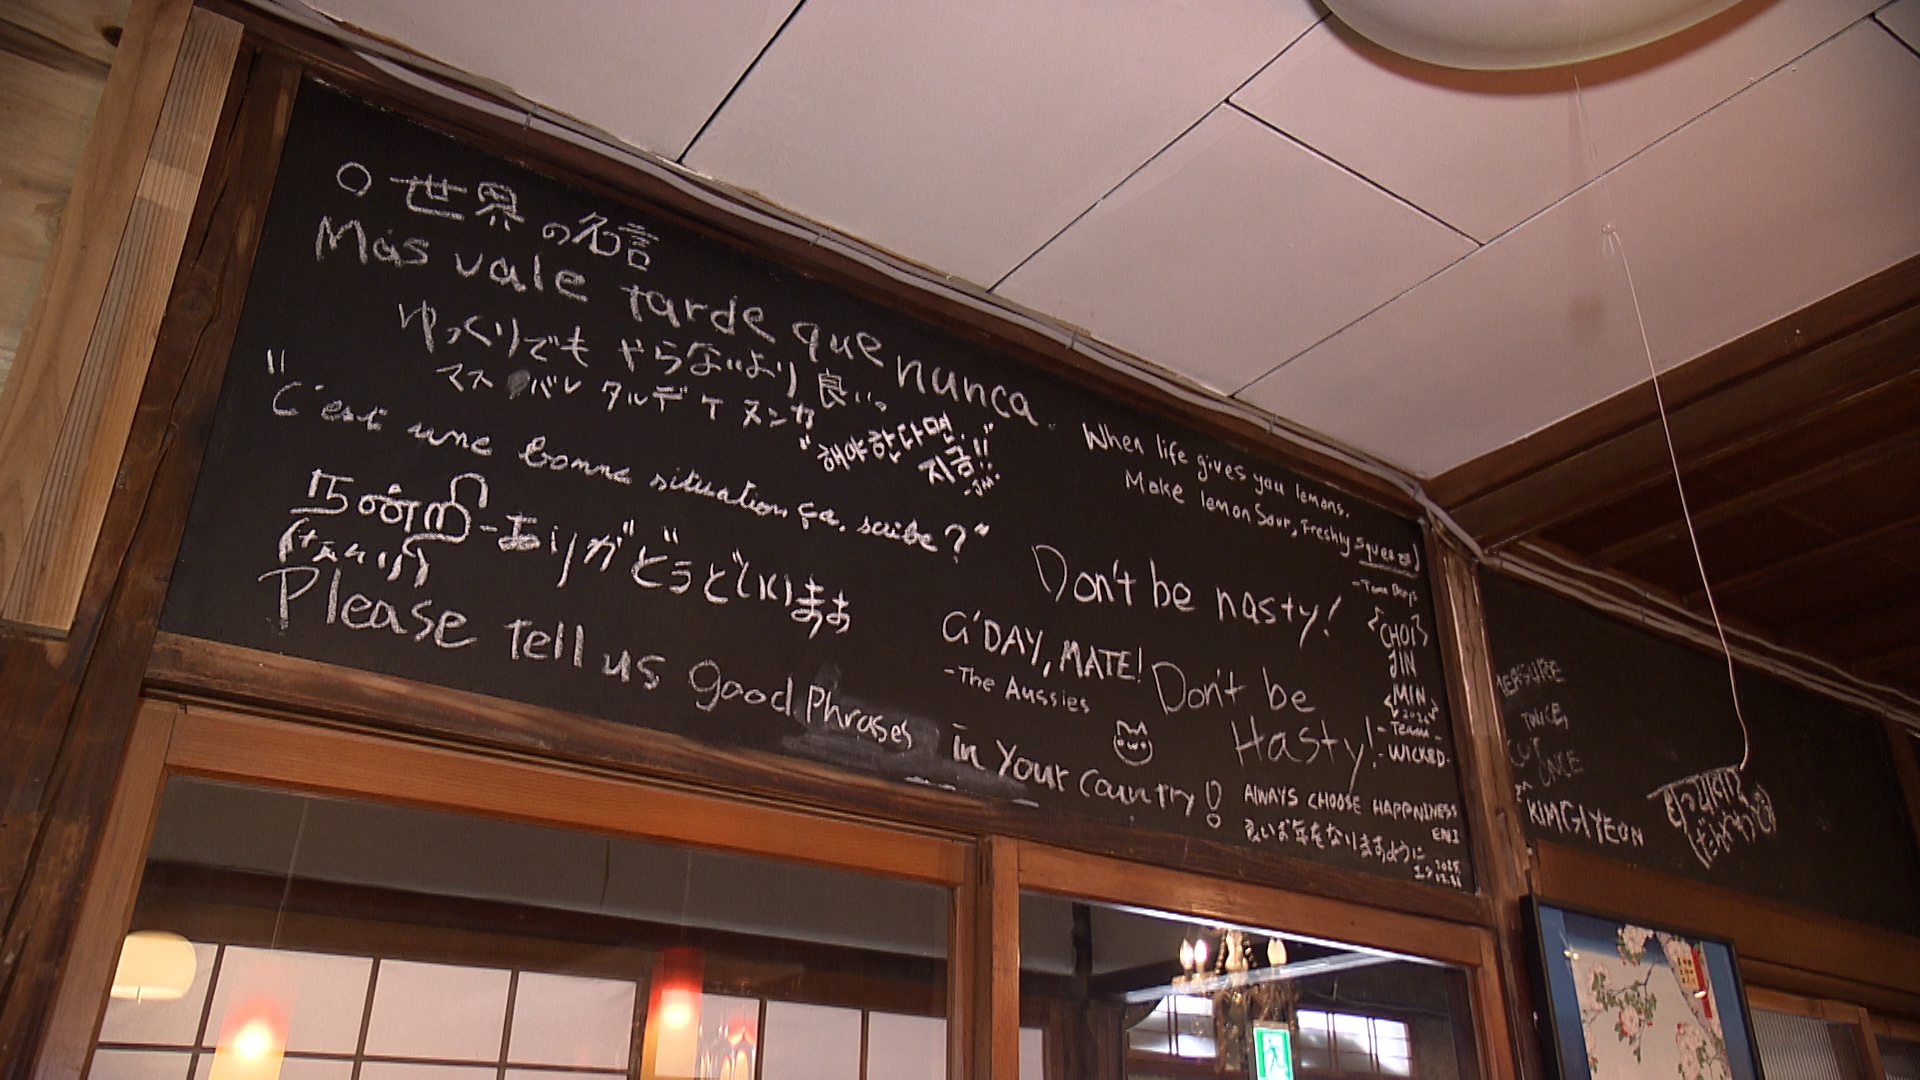 ○世界の名言
Más vale tarde que nunca.
ゆっくりでも やらないより良い。
マス バレ タルデ ケ ヌンカ
"해야한다면,
지금!!"
"C'est une bonne situation, ça, scribe?"
நன்றி-ありがとうございます
Please tell us good Phrases in Your Country!
When life gives you lemons.
Make lemon sour, Freshly squeezed
Don't be nasty!
G'DAY, MATE!
-The Aussies
Don't be
Hasty!
{CHOI}
JIN
<MIN>
-Team-
-WICKED-
ALWAYS CHOOSE HAPPNINESS
ENI
良いお年をなりますように
2025
12.31
MEASURE
TWICE,
CUT
ONCE
KIMGIYEON
धन्यवाद